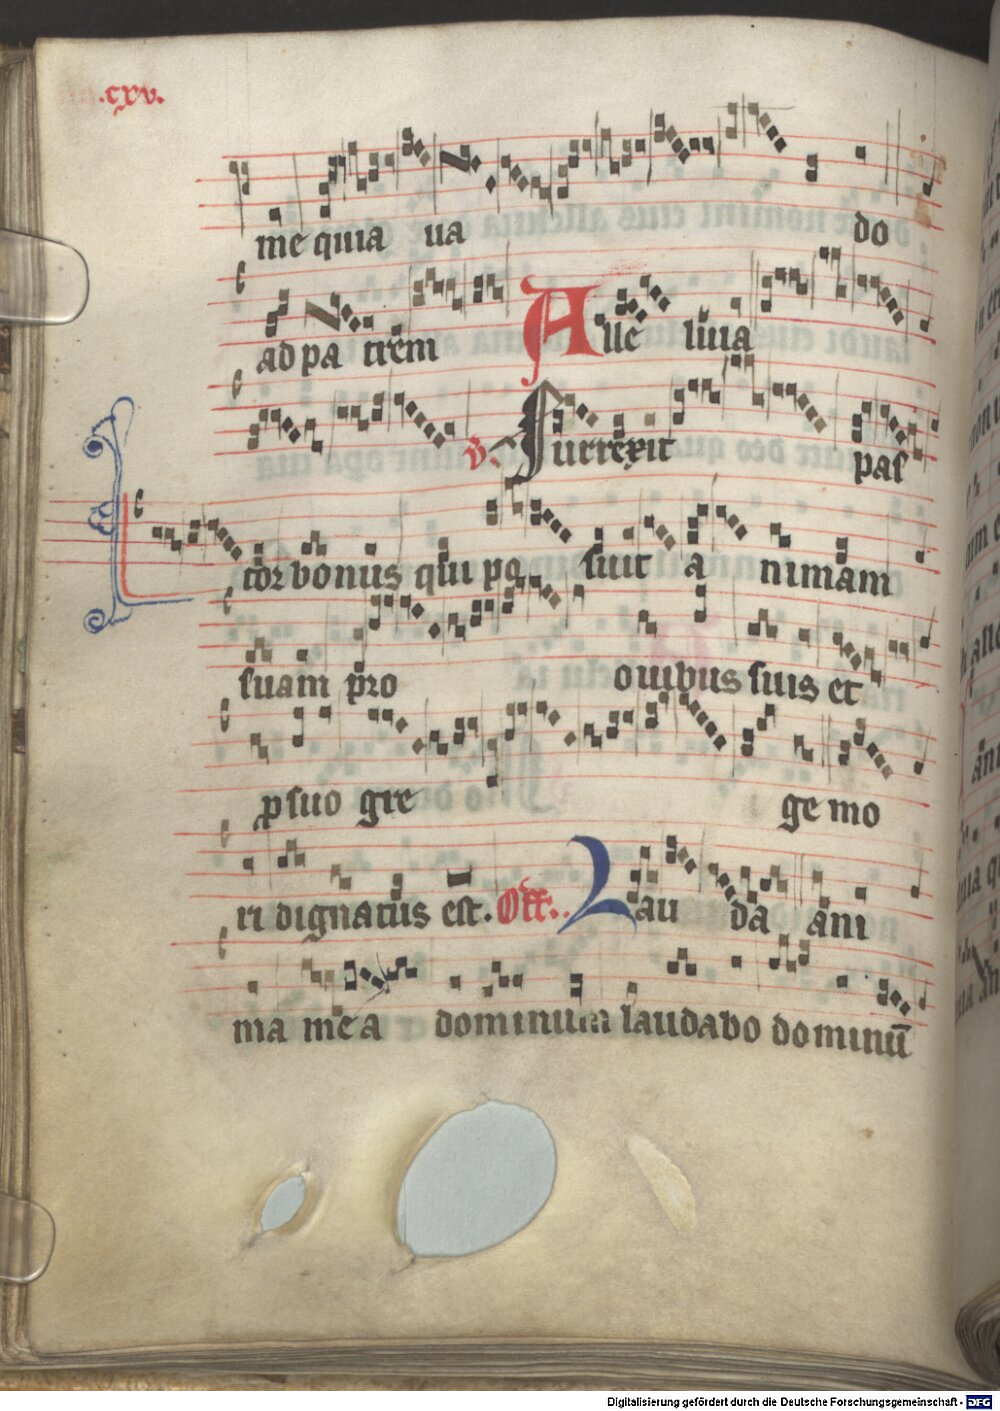 .cxv.
me quia ua do
ad pa trem Alle luia
v. Surrexit pas
tor bonus qui po suit a nimam
suam pro ouibus suis et
p suo gre ge mo
ri dignatus est. Off. Lau da ani
ma mea dominum laudabo dominū
Digitalisierung gefördert durch die Deutsche Forschungsgemeinschaft - DFG